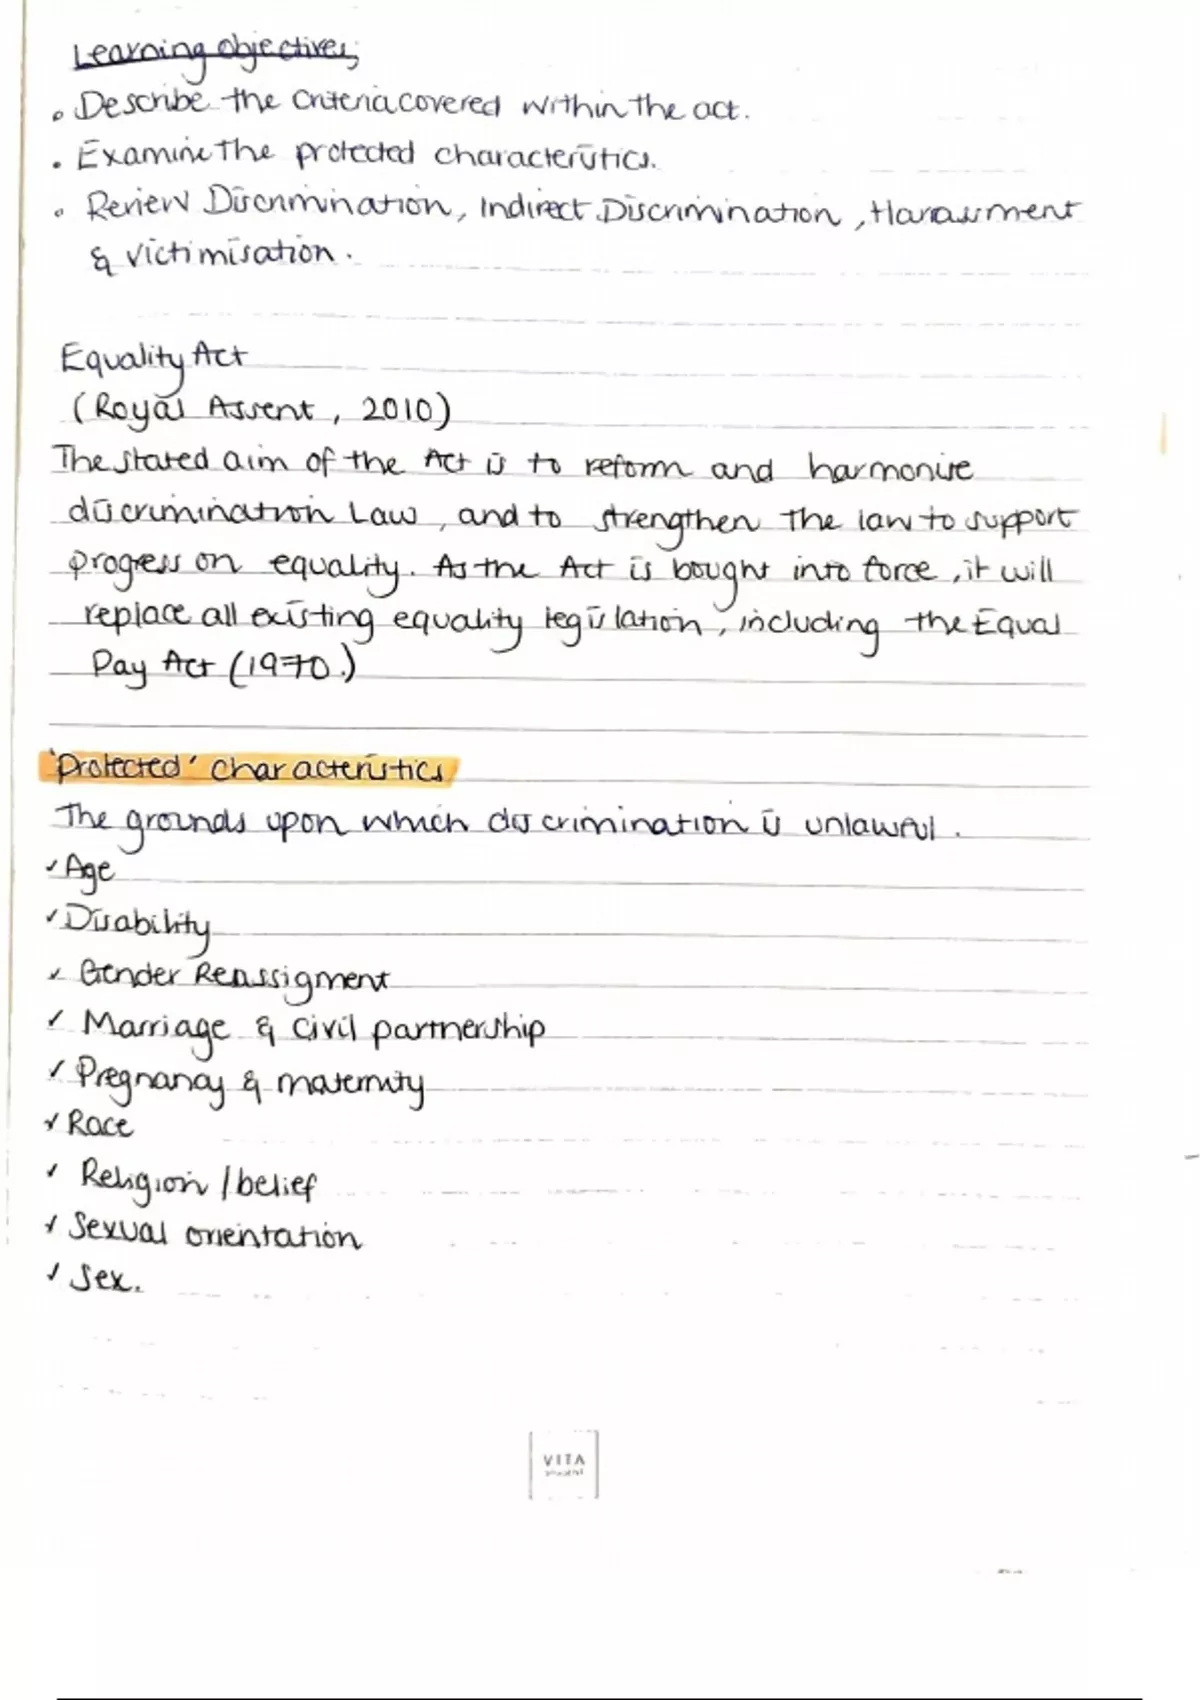 Learning objectives;
• Describe the Criteria covered within the act.
• Examine the protected characteristics.
• Review Discrimination, Indirect Discrimination, Harassment
& victimisation.
Equality Act
(Royal Assent, 2010)
The stated aim of the Act is to reform and harmonise
discrimination Law, and to strengthen the law to support
progress on equality. As the Act is bought into force, it will
replace all existing equality legislation, including the Equal
Pay Act (1970.)
'Protected' characteristics
The grounds upon which discrimination is unlawful.
✓ Age
✓ Disability
✓ Gender Reassigment
✓ Marriage & Civil partnership
✓ Pregnancy & maternity
✓ Race
✓ Religion / belief
✓ Sexual orientation
✓ Sex.
VITA